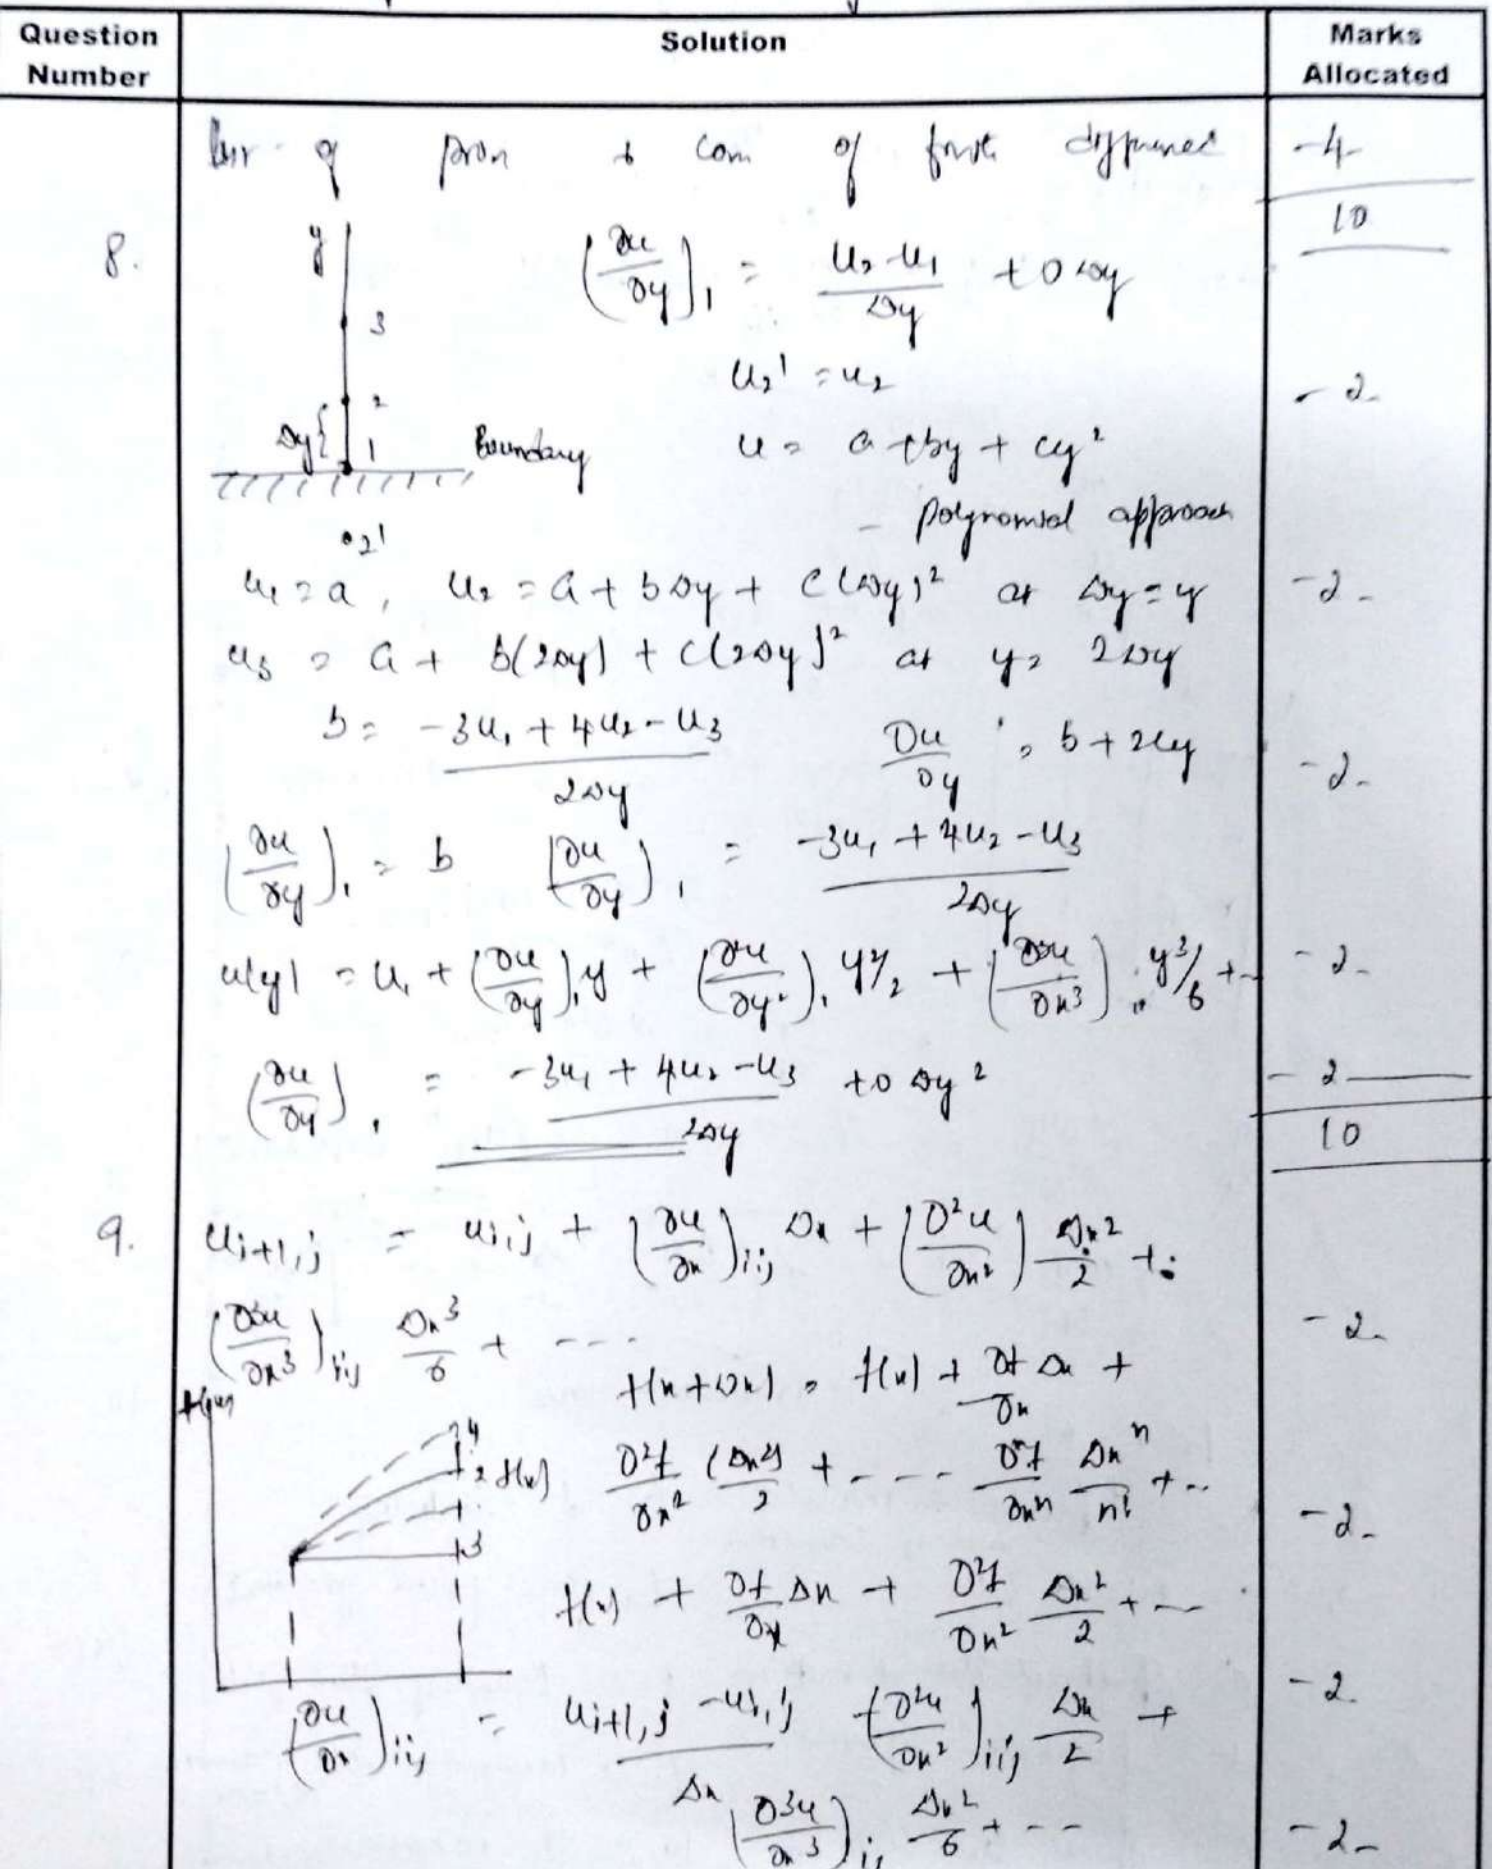 Question Number | Solution | Marks Allocated
of + of -4-
10
8. y (∂u/∂y)₁ = (u₂-u₁)/Δy + 0 Δy
3
u₂' = u₂ -2-
2
Δy{ 1 Boundary u = a + by + cy²
- polynomial approach
2'
u₁ = a, u₂ = a + bΔy + c(Δy)² at Δy = y -2-
u₃ = a + b(2Δy) + c(2Δy)² at y = 2Δy
b = (-3u₁ + 4u₂ - u₃)/2Δy ∂u/∂y = b + 2cy -2-
(∂u/∂y)₁ = b (∂u/∂y)₁ = (-3u₁ + 4u₂ - u₃)/2Δy
u(y) = u₁ + (∂u/∂y)₁ y + (∂²u/∂y²)₁ y²/2 + (∂³u/∂x³)₁ y³/6 + - -2-
(∂u/∂y)₁ = (-3u₁ + 4u₂ - u₃)/2Δy + 0 Δy² -2
10
9. u i+1,j = u i,j + (∂u/∂x) i,j Δx + (∂²u/∂x²) Δx²/2 +
(∂³u/∂x³) i,j Δx³/6 + ---- -2-
f(x+Δx) = f(x) + ∂f/∂x Δx +
4
2 f(x) ∂²f/∂x² (Δx²)/2 + ---- ∂ⁿf/∂xⁿ Δxⁿ/n! + -- -2-
3
f(x) + ∂f/∂x Δx + ∂²f/∂x² Δx²/2 + --
(∂u/∂x) i,j = (u i+1,j - u i,j)/Δx - (∂²u/∂x²) i,j Δx/2 + -2
(∂³u/∂x³) i,j Δx²/6 + -- -2-